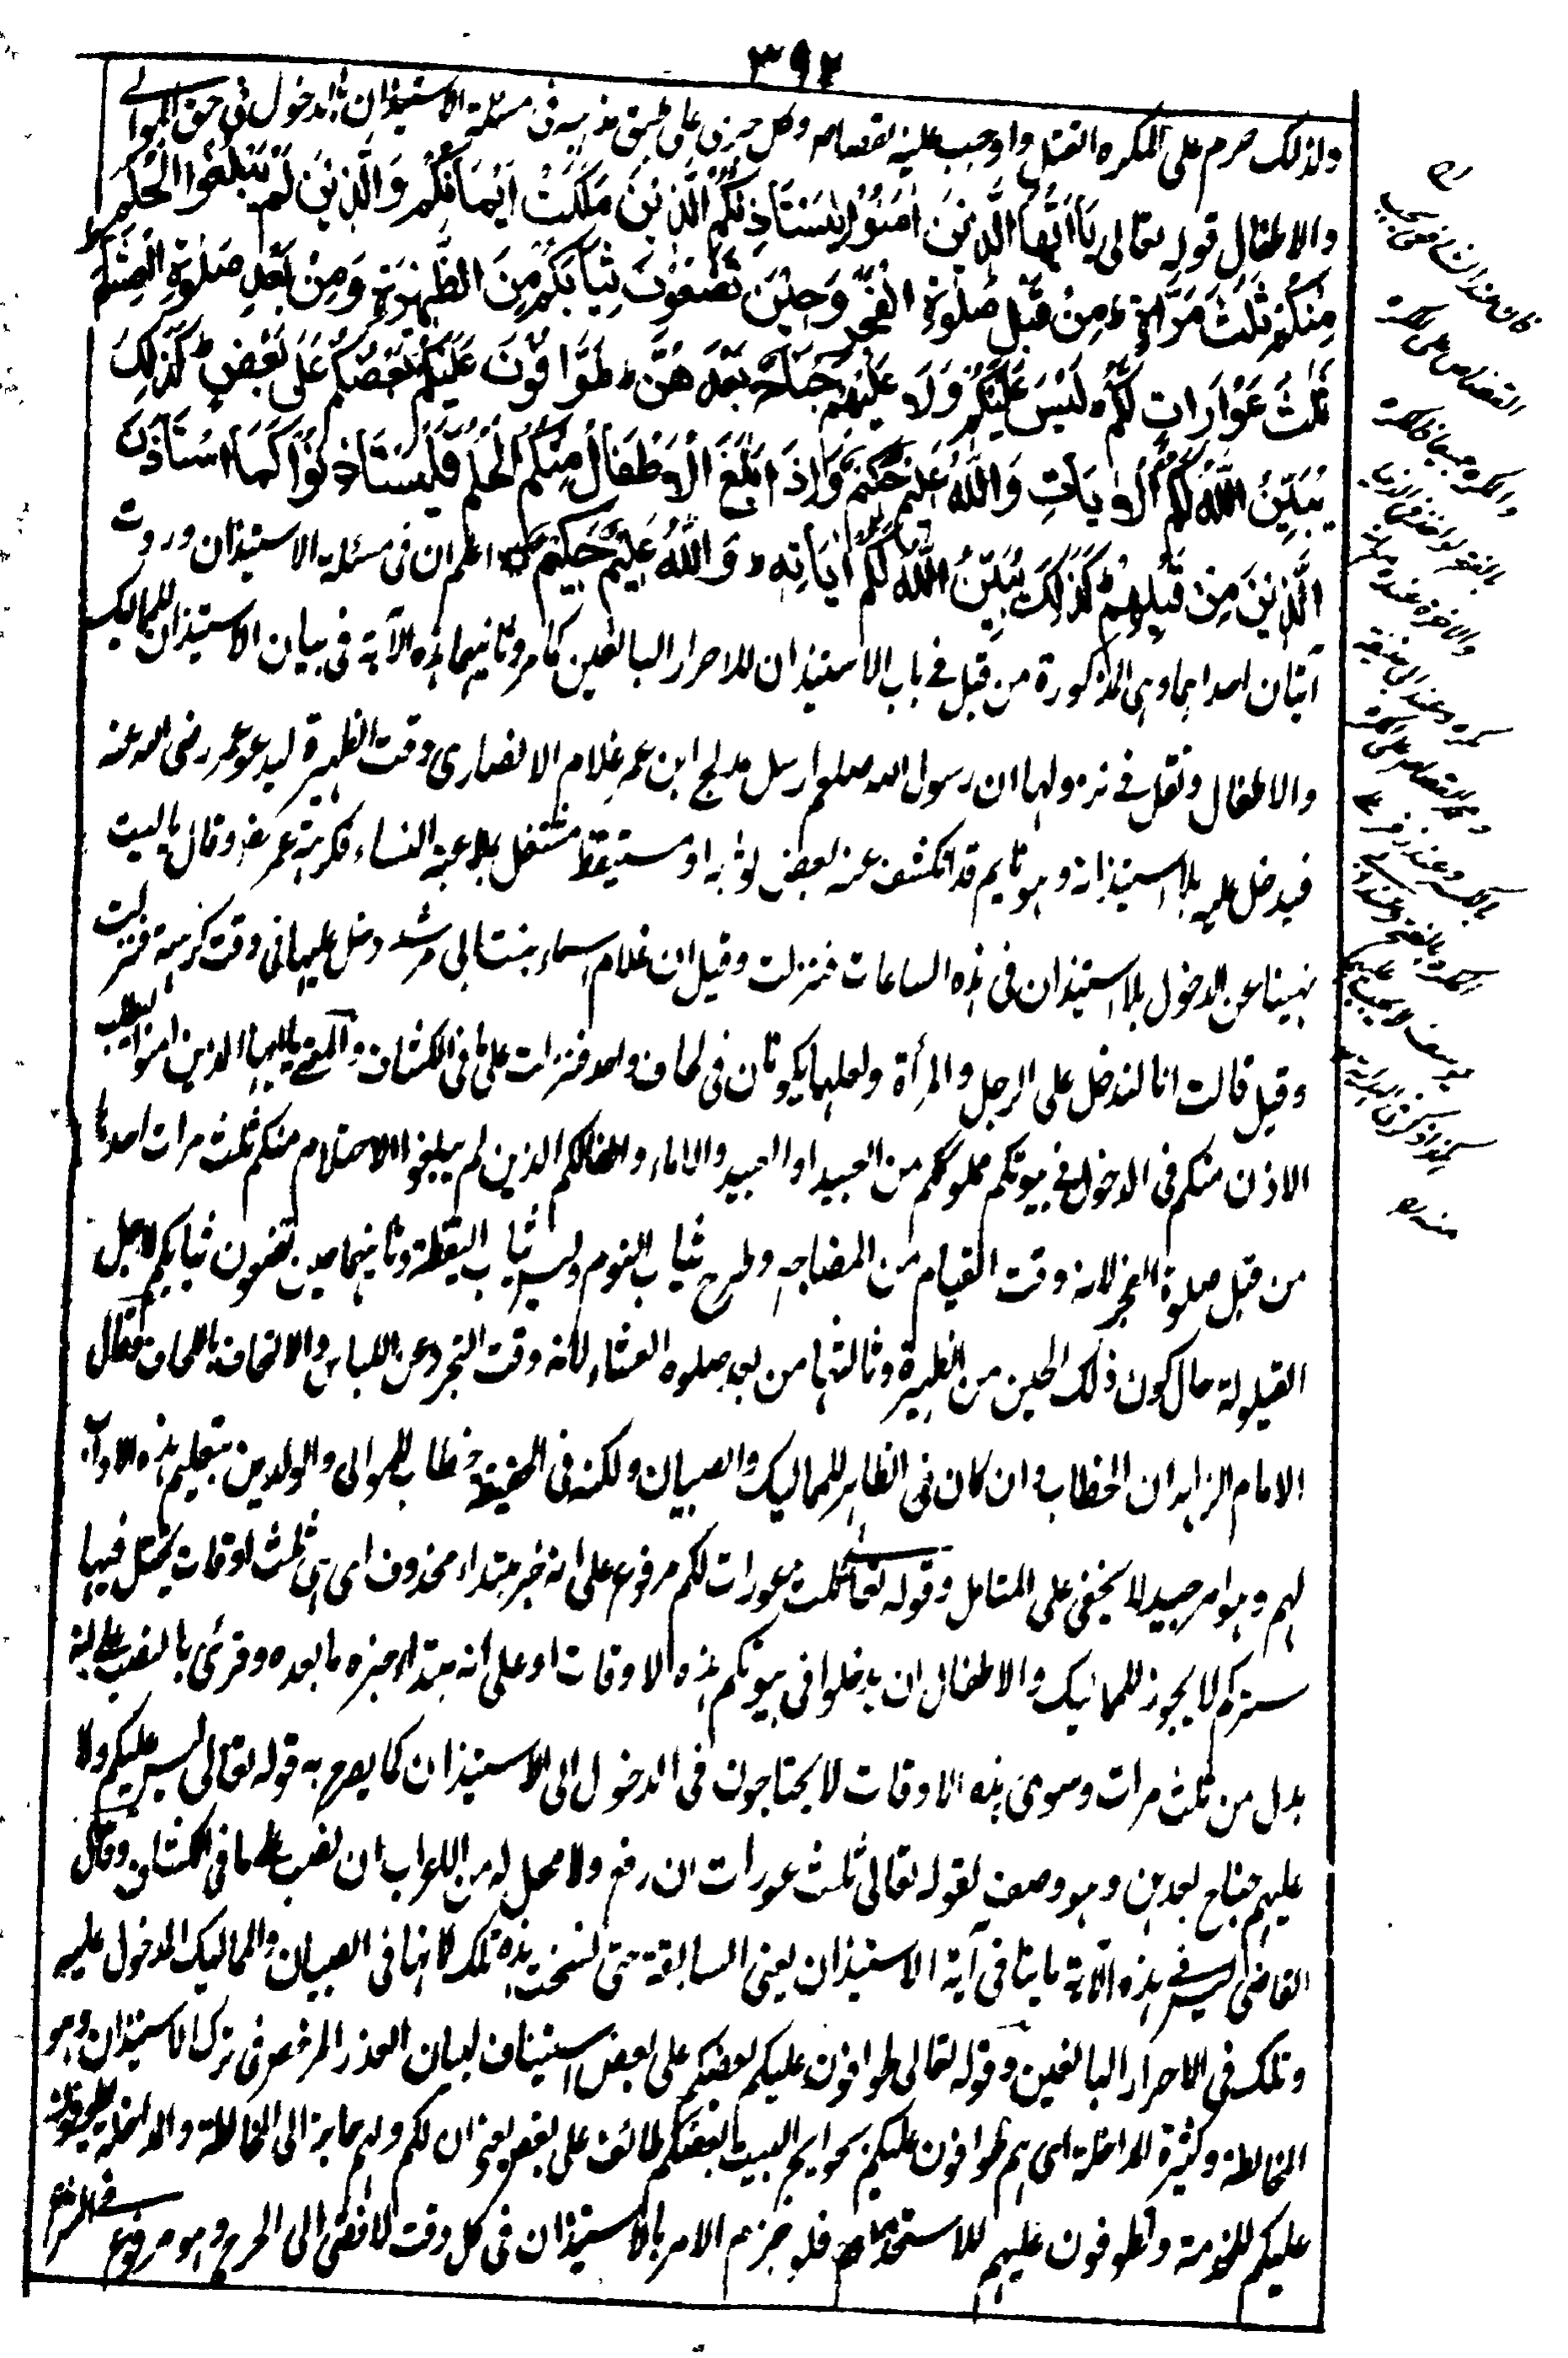 ٣٩٢
ولذلك حرم على المكره القتل واوجب عليه القصاص وكل جرى على طبق مذهبه فى مسئلة الاستيذان للدخول فى حق الموالى
والاطفال قوله تعالى يَا اَيُّهَا الَّذِيْنَ اٰمَنُوْا لِيَسْتَاْذِنْكُمُ الَّذِيْنَ مَلَكَتْ اَيْمَانُكُمْ وَالَّذِيْنَ لَمْ يَبْلُغُوا الْحُلُمَ
مِنْكُمْ ثَلٰثَ مَرَّاتٍ مِنْ قَبْلِ صَلٰوةِ الْفَجْرِ وَحِيْنَ تَضَعُوْنَ ثِيَابَكُمْ مِنَ الظَّهِيْرَةِ وَمِنْ بَعْدِ صَلٰوةِ الْعِشَآءِ
ثَلٰثُ عَوْرَاتٍ لَكُمْ لَيْسَ عَلَيْكُمْ وَلَا عَلَيْهِمْ جُنَاحٌ بَعْدَهُنَّ طَوَّافُوْنَ عَلَيْكُمْ بَعْضُكُمْ عَلٰى بَعْضٍ كَذٰلِكَ
يُبَيِّنُ اللّٰهُ لَكُمُ الْاٰيَاتِ وَاللّٰهُ عَلِيْمٌ حَكِيْمٌ وَاِذَا بَلَغَ الْاَطْفَالُ مِنْكُمُ الْحُلُمَ فَلْيَسْتَاْذِنُوْا كَمَا اسْتَاْذَنَ
الَّذِيْنَ مِنْ قَبْلِهِمْ كَذٰلِكَ يُبَيِّنُ اللّٰهُ لَكُمْ اٰيَاتِهٖ وَاللّٰهُ عَلِيْمٌ حَكِيْمٌ اعلم ان فى مسئلة الاستيذان وردت
آيتان احدٰهما وهى المذكورة من قبل فى باب الاستيذان للاحرار البالغين كما مر وثانيهما هذه الآية فى بيان الاستيذان للمماليك
والاطفال ونقل فى نزولها ان رسول الله صلعم ارسل مدلج ابن عمر غلام الانصارى وقت الظهيرة ليدعو عمر رضى الله عنه
فيدخل عليه بلا استيذانه وهو نايم قد انكشف عنه بعض ثوبه او مستيقظ مشتغل بملاعبة النساء فكرهه عمر رض وقال ياليت
نهينا عن الدخول بلا استيذان فى هذه الساعات فنزلت وقيل ان غلام اسماء بنت ابى مرشد دخل عليها فى وقت كرهته فنزلت
وقيل قالت انا لندخل على الرجل والمرأة ولعلهما يكونان فى لحاف واحد فنزلت على ما فى الكشاف والمعنى يا ايها الذين امنوا ليطلب
الاذن منكم فى الدخول فى بيوتكم مملوككم من العبيد او العبيد والاماء واطفالكم الذين لم يبلغوا الاحتلام منكم ثلث مرات احدها
من قبل صلوة الفجر لانه وقت القيام من المضاجع وطرح ثياب النوم ولبس ثياب اليقظة وثانيهما حين تضعون ثيابكم لاجل
القيلولة حال كون ذلك الحين من الظهيرة وثالثها من بعد صلوه العشاء لانه وقت التجرد عن اللباس والالتحاف باللحاف فقال
الامام الزاهد ان الخطاب وان كان فى الظاهر للمماليك والصبيان ولكنه فى الحقيقة خطاب للموالى والوالدين بتعليم هذه الاداب
لهم وهو امر جيد لا يخفى على المتامل وقوله تعالى ثلث عورات لكم مرفوع على انه خبر مبتداء محذوف اى هى ثلث اوقات يختل فيها
ستركم لا يجوز للمماليك والاطفال ان يدخلوا فى بيوتكم هذه الاوقات او على انه مبتداء خبره ما بعده وقرئ بالنصب على انه
بدل من ثلث مرات وسوى هذه الاوقات لا يحتاجون فى الدخول الى الاستيذان كما يصرح به قوله تعالى ليس عليكم ولا
عليهم جناح بعدهن وهو وصف لقوله تعالى ثلث عورات ان رفع ولا محل له من الاعراب ان نصب على ما فى الكشاف وقال
القاضى ليس فى هذه الآية ما ينافى آية الاستيذان يعنى السابقة حتى نسخت هذه تلك لانها فى الصبيان والمماليك المدخول عليه
وتلك فى الاحرار البالغين وقوله تعالى طوافون عليكم بعضكم على بعض استيناف لبيان العذر المرخص فى ترك الاستيذان وهو
المخالطة وكثيرة المداخلة اى هم طوافون عليكم بحوايج البيت بعضكم طائف على بعض يعنى ان لكم ولهم حاجة الى المخالطة والمداخلة يطوفون
عليكم للخدمة وتطوفون عليهم للاستخدام فلو جزم الامر بالاستيذان فى كل وقت لافضى الى الحرج وهو مرفوع فى الشرع
كان عند الشافعى
القصاص على المكره
والمكره جميعا
والآخر
وعند ابى حنيفة
القصاص على المكره
بالكسر وعند زفر على
المكره بالفتح وعند ابى
يوسف لا يجب عليهما
كذا ذكر فى الهداية
منه